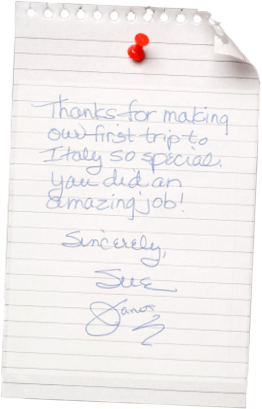 Thanks for making
our first trip to
Italy so special.
You did an
amazing job!
Sincerely,
Sue
Janos